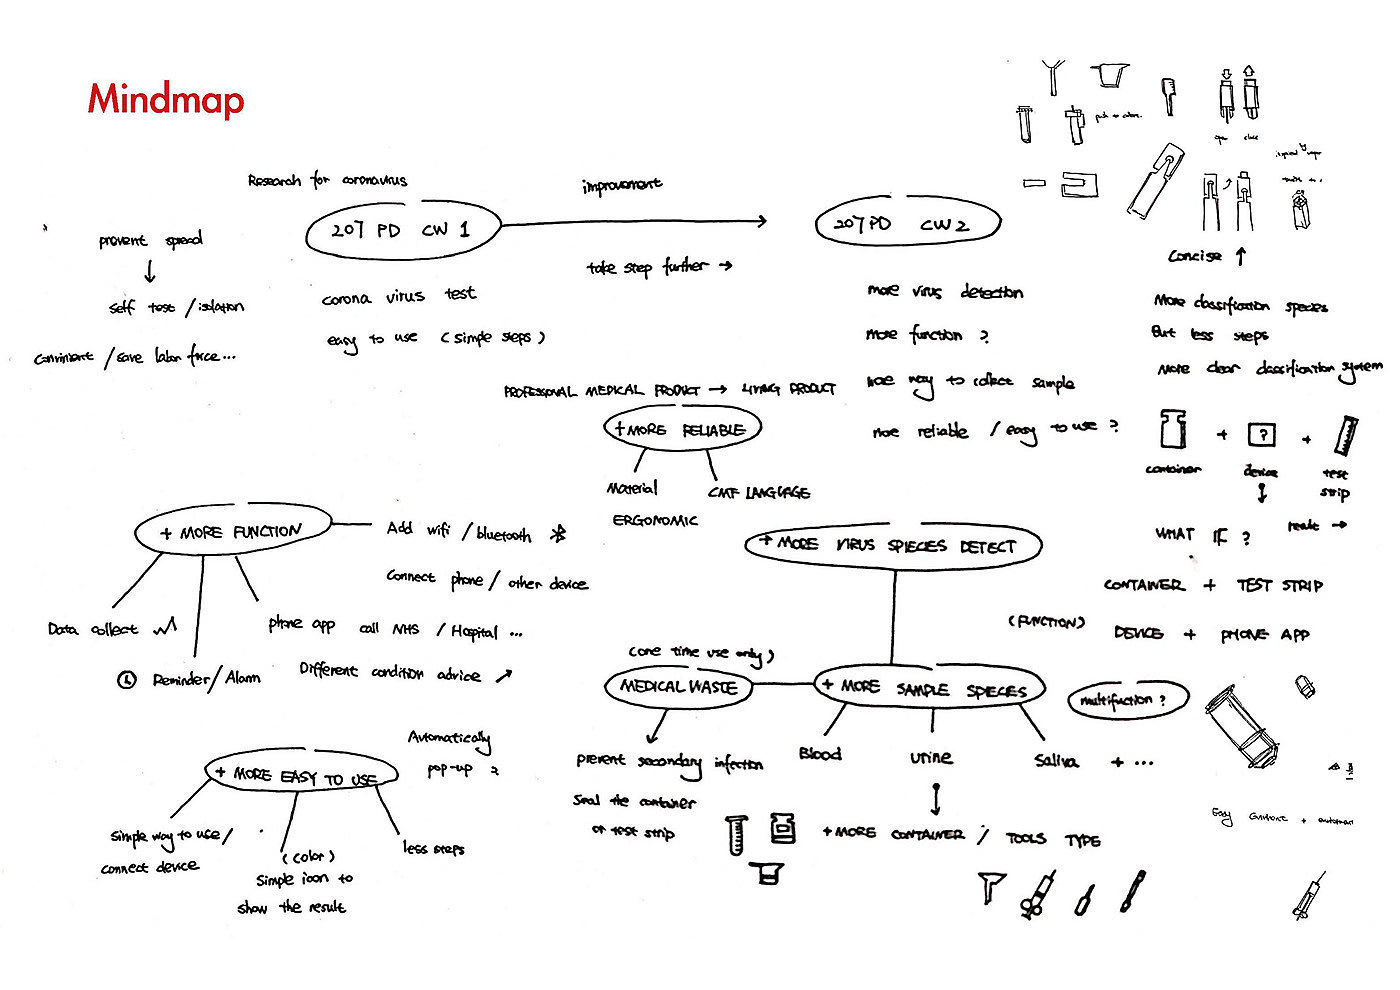 Mindmap
Research for coronavirus
207 PD CW 1
improvement
take step further →
207 PD CW2
prevent spread
self test / isolation
convinient / save labor force...
corona virus test
easy to use (simple steps)
more virus detection
more function ?
more way to collect sample
more reliable / easy to use ?
open
close
Concise ↑
More classification species
But less steps
More clear classification system
container + device + test strip
?
result →
WHAT IF ?
CONTAINER + TEST STRIP
(FUNCTION) DEVICE + PHONE APP
PROFESSIONAL MEDICAL PRODUCT → LIVING PRODUCT
+ MORE RELIABLE
Material
CMF LANGUAGE
ERGONOMIC
+ MORE FUNCTION
Add wifi / bluetooth
Connect phone / other device
Data collect
phone app call NHS / Hospital ...
Reminder / Alarm
Different condition advice
+ MORE VIRUS SPIECES DETECT
(one time use only)
MEDICAL WASTE
+ MORE SAMPLE SPIECES
multifunction ?
prevent secondary infection
Seal the container
or test strip
Blood
urine
Saliva + ...
+ MORE CONTAINER / TOOLS TYPE
+ MORE EASY TO USE
Automatically
pop-up ?
simple way to use /
connect device
(color)
simple icon to
show the result
less steps
Easy